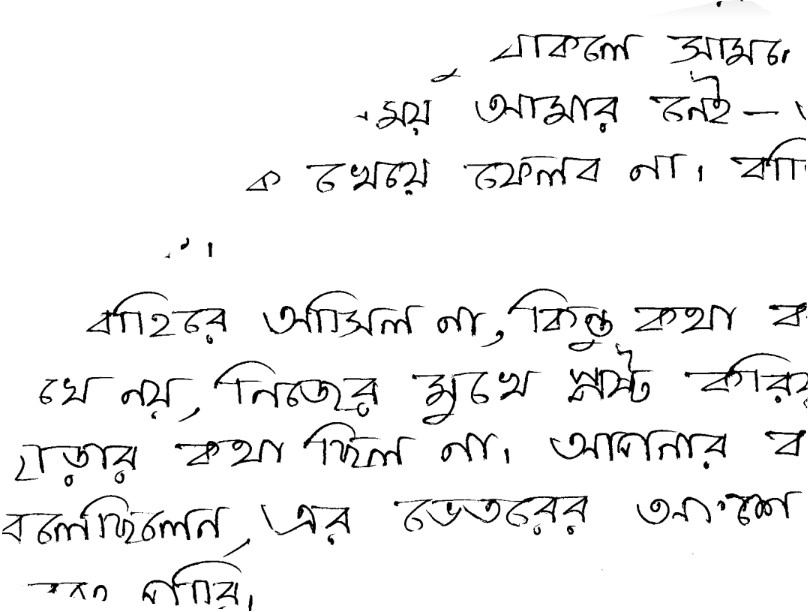 থাকলে আমা
ময় আমার নেই –
ক খেয়ে ফেলব না। বা
।
বাহিরে আসিল না, কিন্তু কথা ক
খে নয়, নিজের মুখে স্পষ্ট করিয়
ছাড়ার কথা ছিল না। আপনার ব
বলেছিলেন, এর ভেতরের অংশে